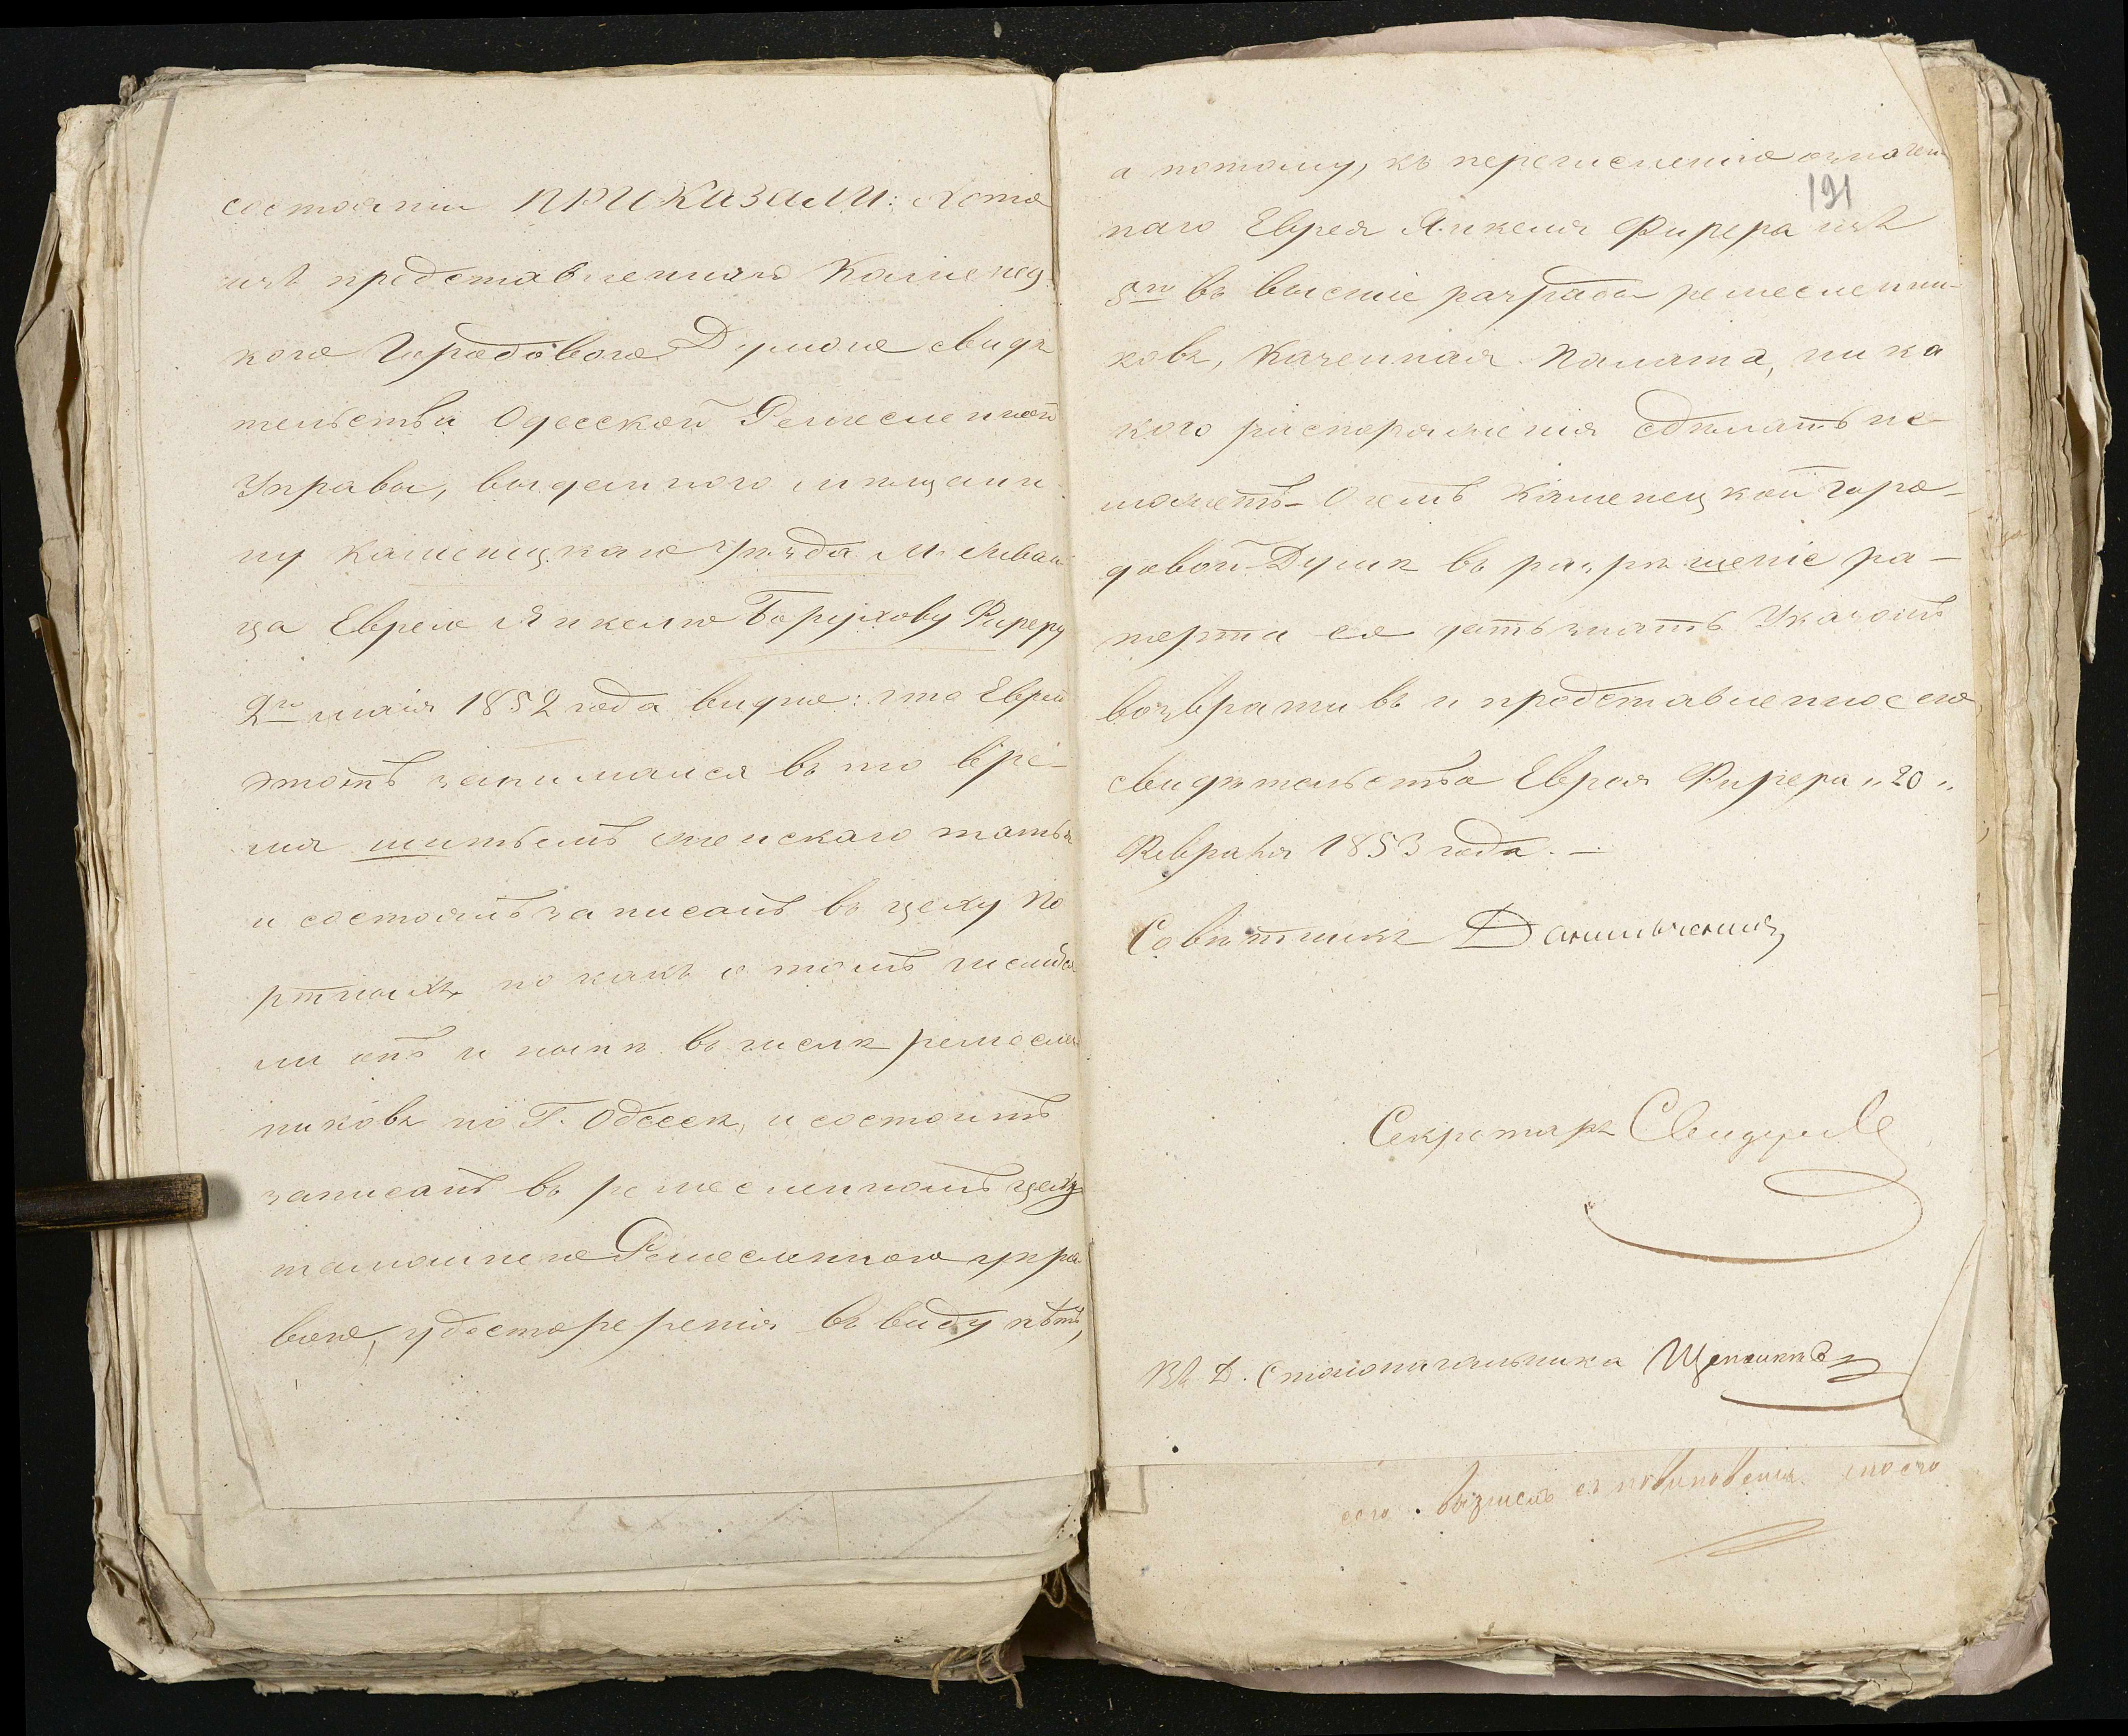 состоянии ПРИКАЗАЛИ: Хотя
изъ представленнаго Каменец-
кою Городовою Думою свидѣ
тельства Одесской Ремесленной
Управы, выданного мѣщани
ну Каменецкаго уѣзда м.
ца Еврею Янкелю Борухову Фиреру
2го маія 1852 года видно: что Еврей
этотъ занимался въ то вре-
мя шитьемъ женскаго платья
и состоялъ записанъ въ цеху По
ртныхъ, но какъ о томъ числится
ли онъ и нынѣ въ числѣ ремеслен
никовъ по Г. Одессѣ, и состоитъ
записанъ въ ремесленномъ цеху
тамошнею Ремесленною упра
вою, удостоверения въ виду нѣтъ,
191
а потому, къ перечисленію означен
наго Еврея Янкеля Фирера изъ
5го въ высшіе разряды ремесленни-
ковъ, Казенная Палата, ника
кого распоряженія сдѣлать не
можетъ. О чемъ Каменецкой горо-
довой Думѣ въ разрѣшеніе ра-
порта ея дать знать Указомъ
возвративъ и представленное ею
свидѣтельства Еврея Фирера „20„
Февраля 1853 года. —
Совѣтникъ
Секретарь
В. Д. Столоначальника
сего